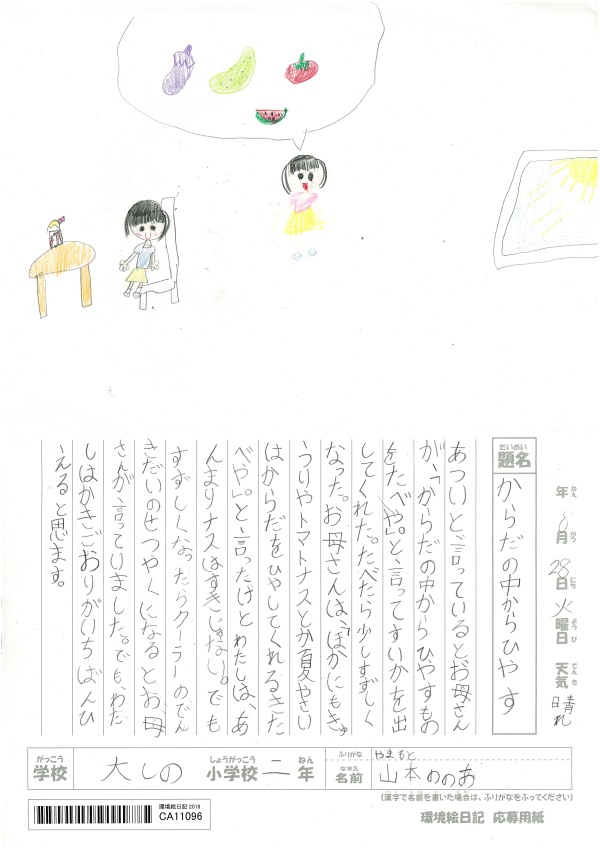 年 8月 28日 火曜日 天気 晴れ
ねん がつ にち ようび てんき
だいめい
題名 からだの中からひやす
あついと、言っているとお母さん
が、「からだの中からひやすもの
をたべや。」と、言ってすいかを出
してくれた。たべたら少しすずしく
なった。お母さんは、「ほかにもきゅ
うりやトマトナスとか夏やさい
はからだをひやしてくれるきた
べや。」と、言ったけどわたしは、あ
んまりナスはすきじゃない。でも
すずしくなったらクーラーのでん
きだいのせつやくになるとお母
さんが、言っていました。でも、わた
しはかきごおりがいちばんひ
えると思います。
がっこう しょうがっこう ねん ふりがな やまもと
学校 大しの 小学校 二年 なまえ 名前 山本ののあ
(漢字で名前を書いた場合は、ふりがなをふってください)
環境絵日記 応募用紙
環境絵日記 2018
CA11096